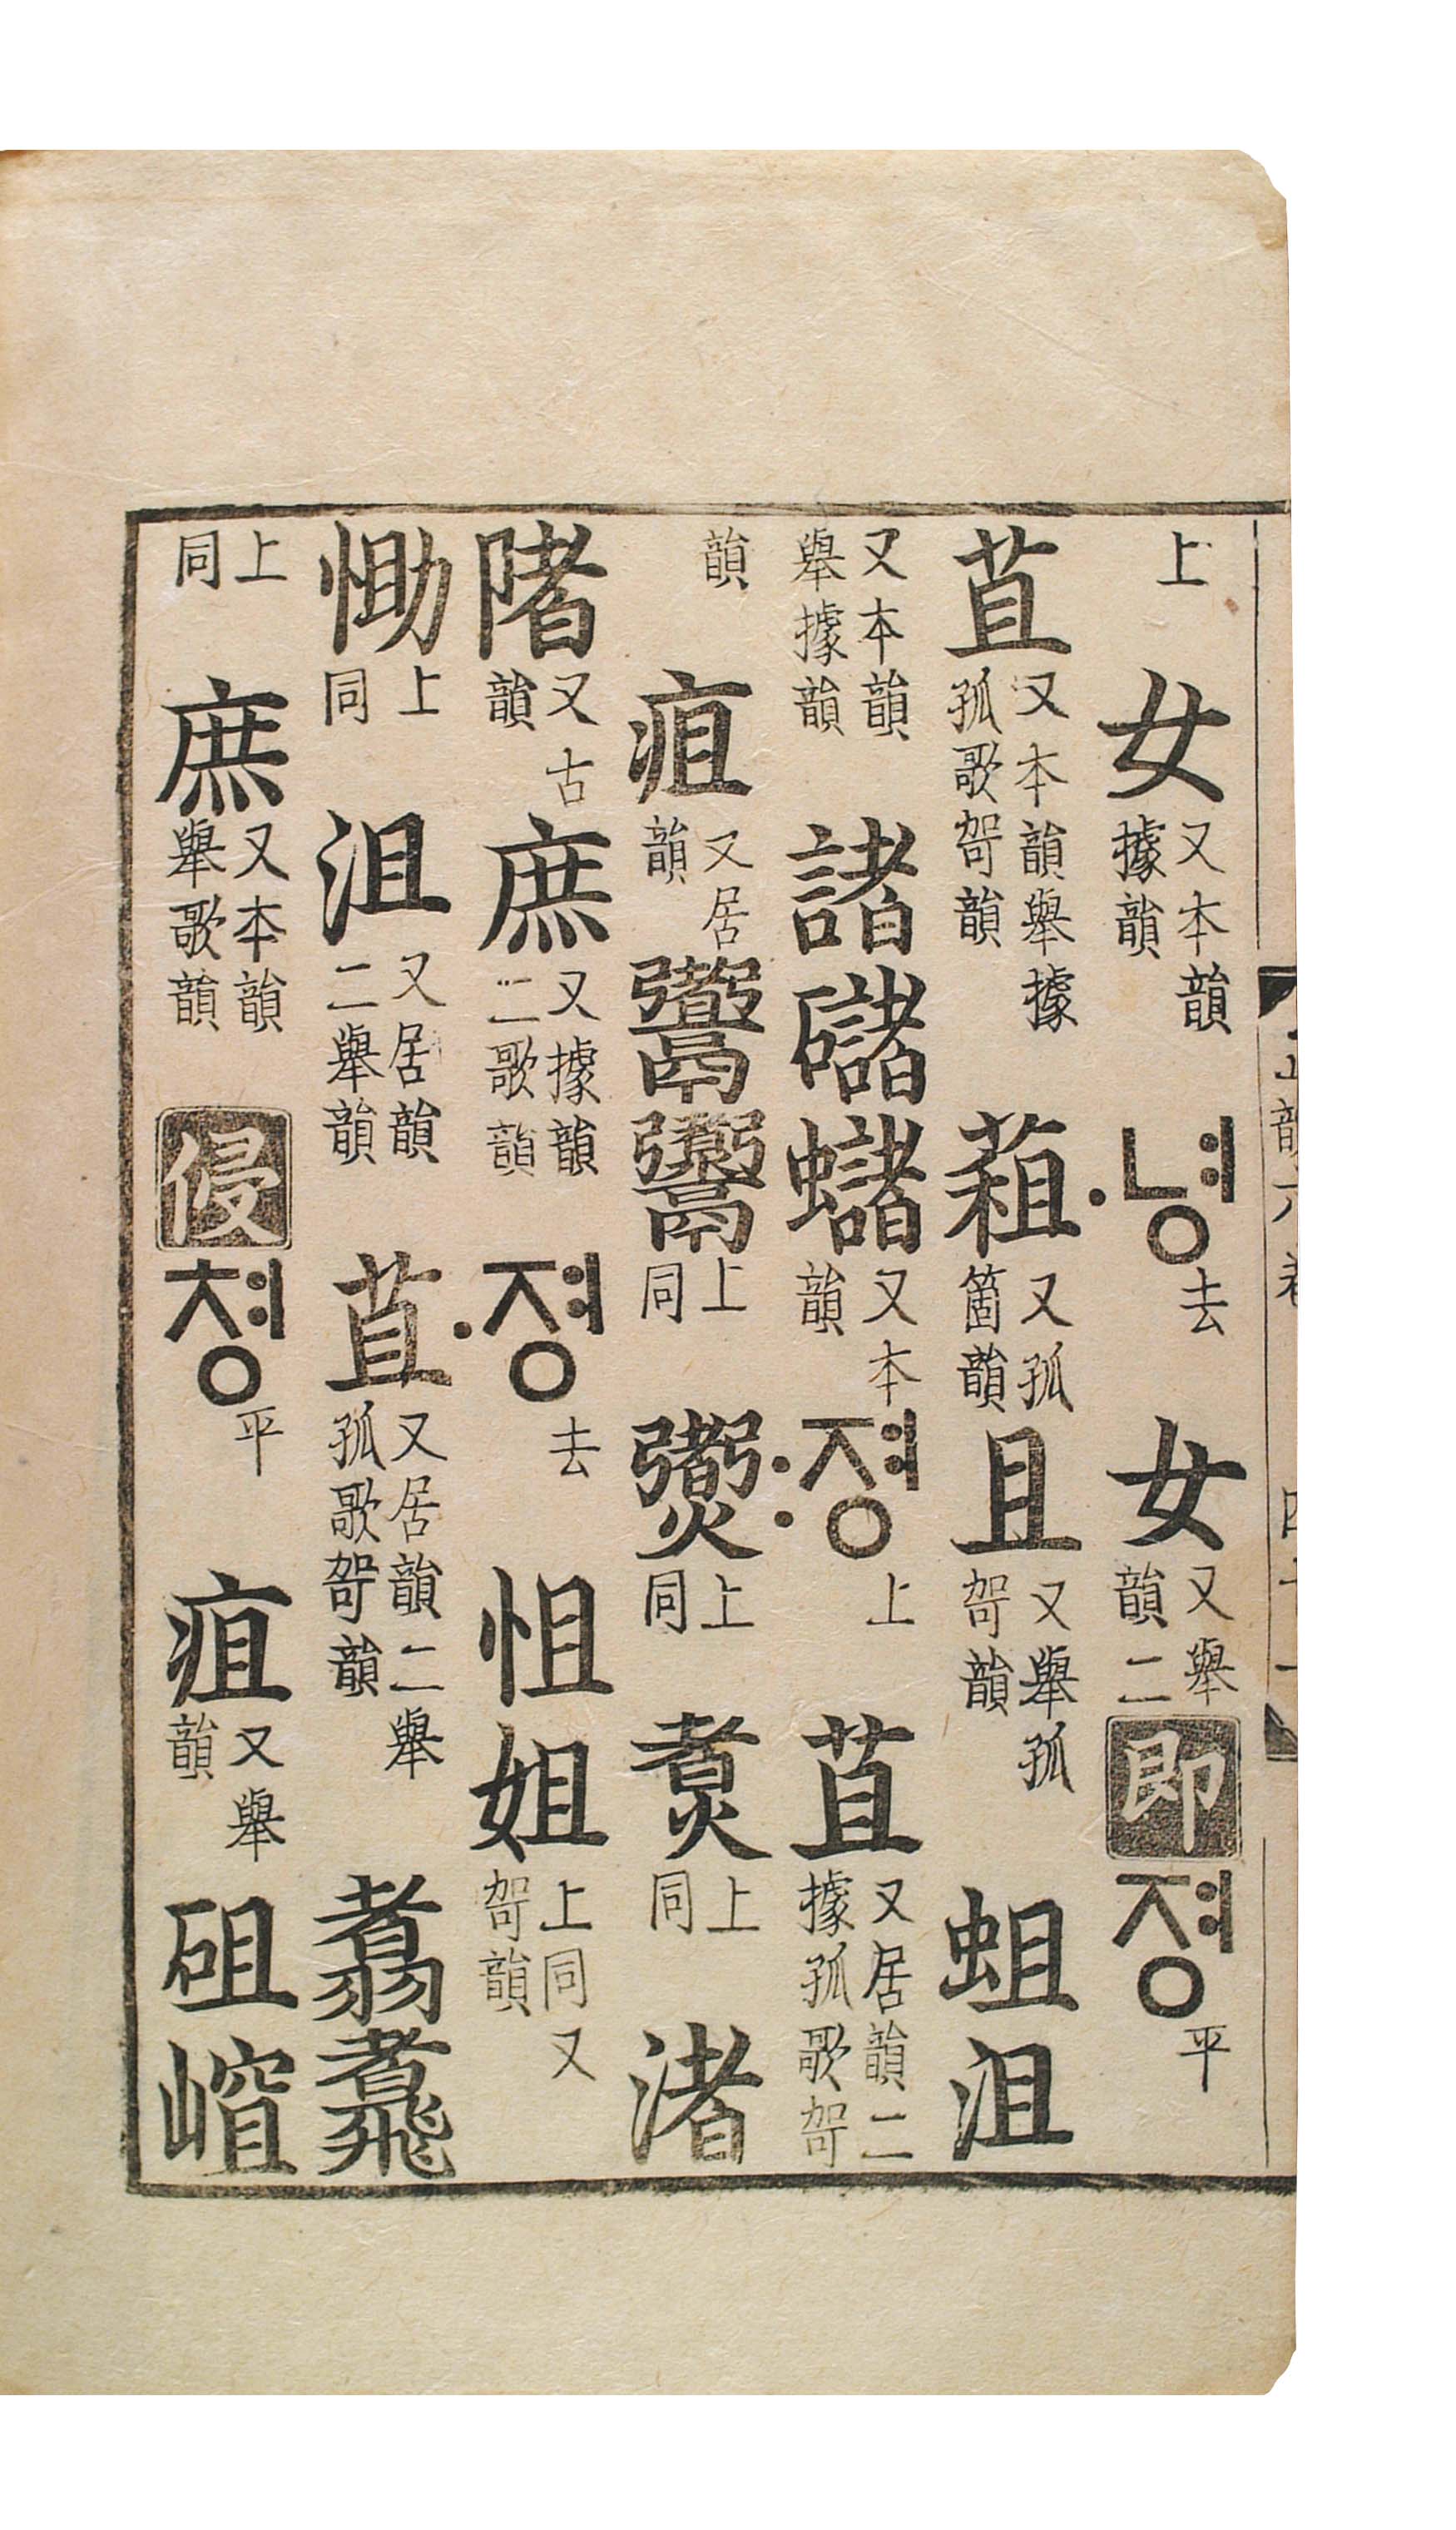 上 女 又本韻據韻 ·녕 去 女 又舉韻二 即 졍 平
苴 又本韻舉據孤歌哿韻 蒩 又孤箇韻 且 又舉孤哿韻 蛆 沮
又本韻舉據韻 諸 礛 蠩 又本韻 :졍 上 苴 又居韻二據孤歌哿
韻 疽 又居韻 上同 上同 煑 上同 渚
陼 又古韻 庶 又據韻二歌韻 ·졍 去 怚 姐 上同又哿韻
上同 沮 又居韻二舉韻 苴 又居韻二舉孤歌哿韻 翥
上同 庶 又本韻舉歌韻 侵 쳥 平 疽 又舉韻 砠